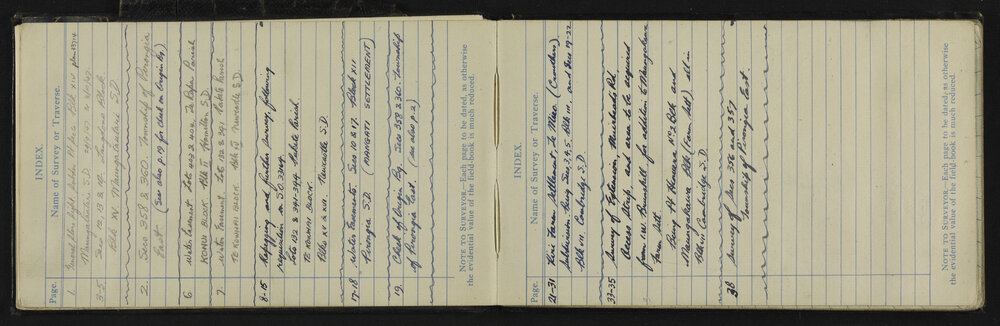 INDEX.
Page. Name of Survey or Traverse.
1. Puketi Blk XIV plan 33714
Maungatautari S.D.
3-5 Secs 12, 13 & 14
Blk IV Maungatautari S.D
2. Secs 358 & 360. Township of Pirongia
East (See also p.19 for check on Origin Pg.)
6 Water Easement Lots 402 & 404 Te Papa Parish
KOMU BLOCK Blk II Hamilton S.D.
7. Water Easement Lots 132 & 341 Parish
TE KOWHAI BLOCK Blk Newcastle S.D
8-15 Repegging and further survey, following
requisition on S.O.33164.
Lots 132 & 341-344 Parish
TE KOWHAI BLOCK
Blks XV & XVI. Newcastle S.D
17-18 Water Easements Secs 10 & 17. Block XII
Pirongia S.D (MANGATI SETTLEMENT)
19. Check of Origin Pg. Secs 358 & 360. Township
of Pirongia East. (see also p 2)
NOTE TO SURVEYOR.—Each page to be dated, as otherwise
the evidential value of the field-book is much reduced.
INDEX.
Page. Name of Survey or Traverse.
21-31 Settlement, Te Miro (Cambridge)
Subdivision, being Secs 3, 4, 5, Blk and Secs 19-22
Blk Cambridge S.D.
33-35 Survey of Extension, Muirheads Rd,
Access Strip, and area to be acquired
from for addition to
Farm Sett.
Being Pt No 2 Blk and
Blk (Farm Sett) all in
Blk IX Cambridge S.D.
38 Survey of Secs 356 and 357
Township of Pirongia East.
NOTE TO SURVEYOR.—Each page to be dated, as otherwise
the evidential value of the field-book is much reduced.